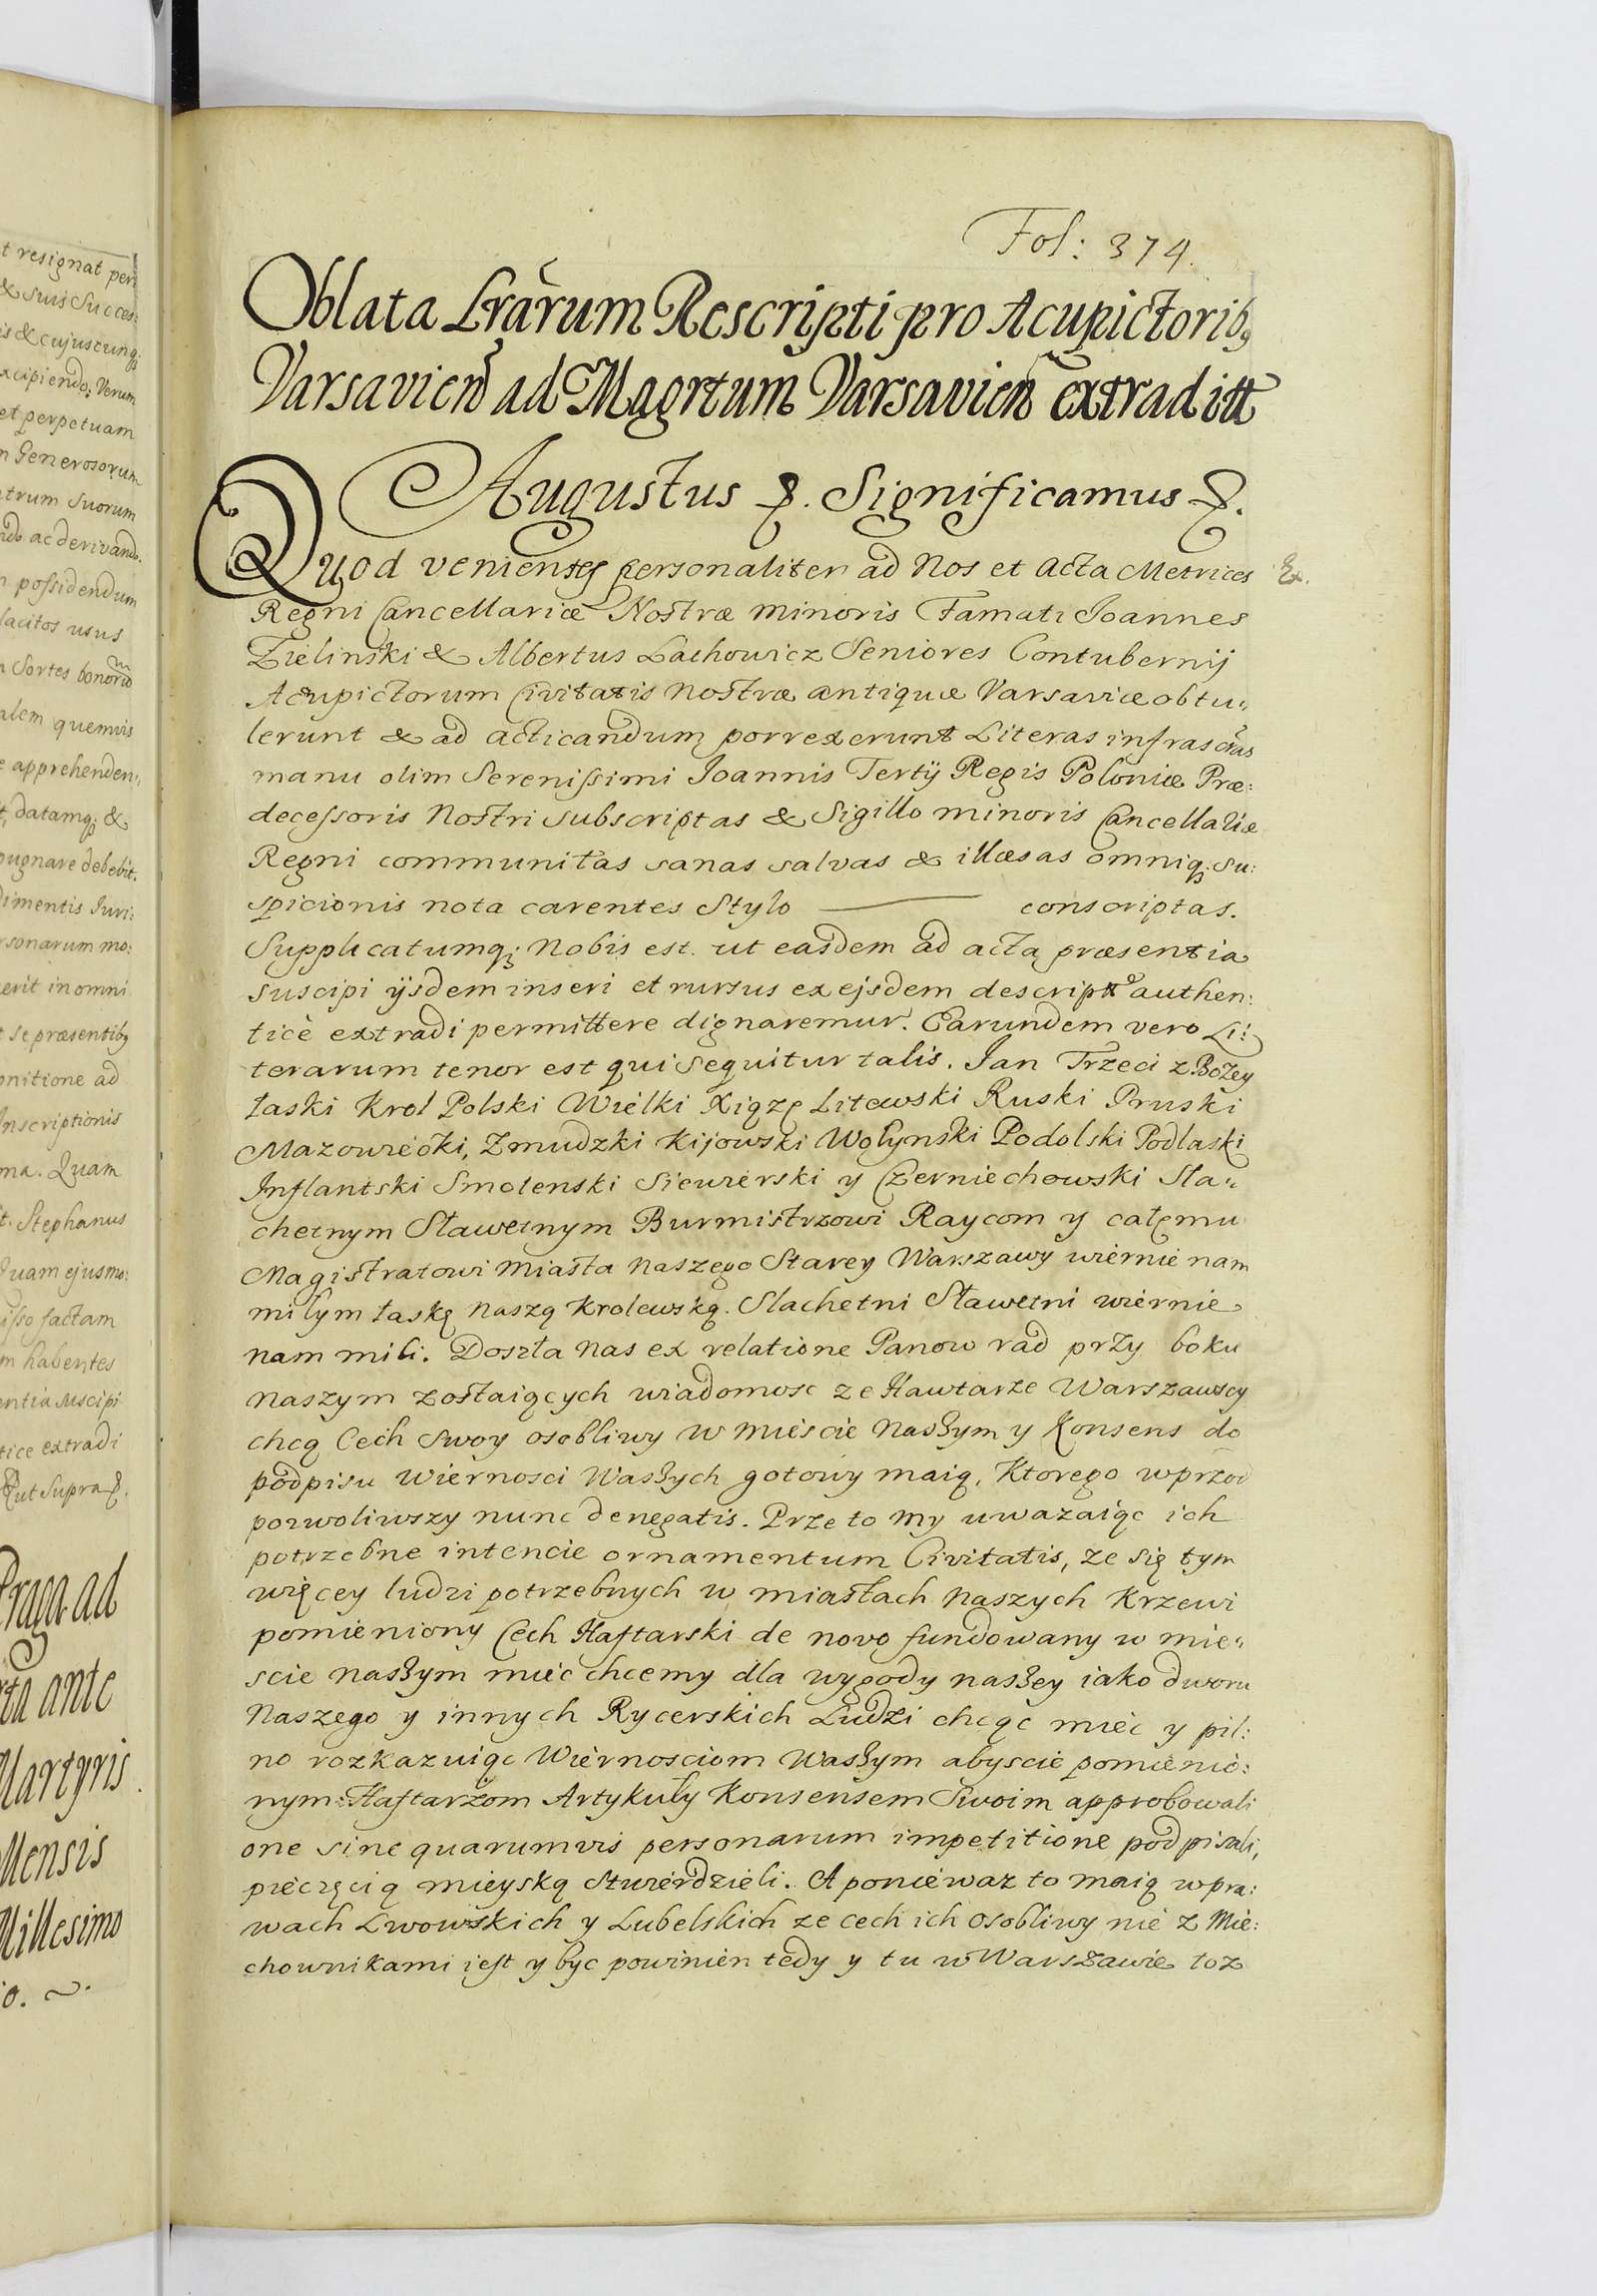 t resignat per
& suis Succes:
is & cujuscunq;
xcipiendo; Verum
et perpetuam
n Generosorum
trum suorum
ndo ac derivando.
n possidendum
lacitos usus
n Sortes bonorū
alem quemvis
e apprehenden„
t, datamq; &
pugnare debebit.
dimentis Iuri:
rsonarum mo:
erit in omni
t se præsentibq
onitione ad
Inscriptionis
ma. Quam
t. Stephanus
Quam ejusmo:
isso factam
m habentes
entia suscipi
tice extradi
ut supra &.
Praga ad
ta ante
Martyris
Mensis
Millesimo
o.
Fol: 374.
Oblata Lrārum Rescripti pro Acupictoribq
Varsavień ad Magrtum Varsavień extraditt
Augustus &. Significamus &.
Quod venientes personaliter ad Nos et Acta Metrices Ex.
Regni Cancellariæ Nostræ minoris Famati Joannes
Zielinski & Albertus Lachowicz Seniores Contubernij
Acupictorum Civitatis Nostræ antiquæ Varsaviæ obtu„
lerunt & ad acticandum porrexerunt Literas infrascras
manu olim Serenissimi Joannis Tertij Regis Poloniæ Præ:
decessoris Nostri subscriptas & Sigillo minoris Cancellariæ
Regni communitas sanas salvas & illæsas omniq; su:
spicionis nota carentes Stylo ——— conscriptas.
Supplicatumq; Nobis est. ut easdem ad acta præsentia
suscipi ijsdem inseri et rursus ex ejsdem descriptto authen:
ticè extradi permittere dignaremur. Earundem vero Li:
terarum tenor est qui sequitur talis. Jan Trzeci z Bożey
łaski Krol Polski Wielki Xiąze Litewski Ruski Pruski
Mazowiecki, Zmudzki Kijowski Wołynski Podolski Podlaski
Inflantski Smolenski Siewierski y Czerniechowski Sla„
chetnym Sławetnym Burmistrzowi Raycom y całemu
Magistratowi miasta naszego Starey Warszawy wiernie nam
miłym łaskę naszą Krolewską. Slachetni Sławetni wiernie
nam mili. Doszła nas ex relatione Panow rad przy boku
naszym zostaiących wiadomosc ze Hawtarze Warszawscy
chcą Cech swoy osobliwy w miescie naszym y Konsens do
podpisu wiernosci waszych gotowy maią, Ktorego wprzod
pozwoliwszy nunc denegatis. Przeto my uwazaiąc ich
potrzebne intencie ornamentum Civitatis, ze się tym
więcey ludzi potrzebnych w miastach naszych krzewi
pomieniony Cech Haftarski de novo fundowany w mie„
scie naszym miec chcemy dla wygody naszey iako dworu
Naszego y innych Rycerskich Ludzi chcąc miec y pil:
no rozkazuiąc Wiernosciom Waszym abyscie pomienio:
nym Haftarzom Artykuły Konsensem Swoim approbowali
one sine quarumvis personarum impetitione podpisali,
pieczęcią mieyską stwierdzieli. A poniewaz to maią w pra:
wach Lwowskich y Lubelskich ze cech ich osobliwy nie z Mie:
chownikami iest y byc powinien tedy y tu w Warszawie toz